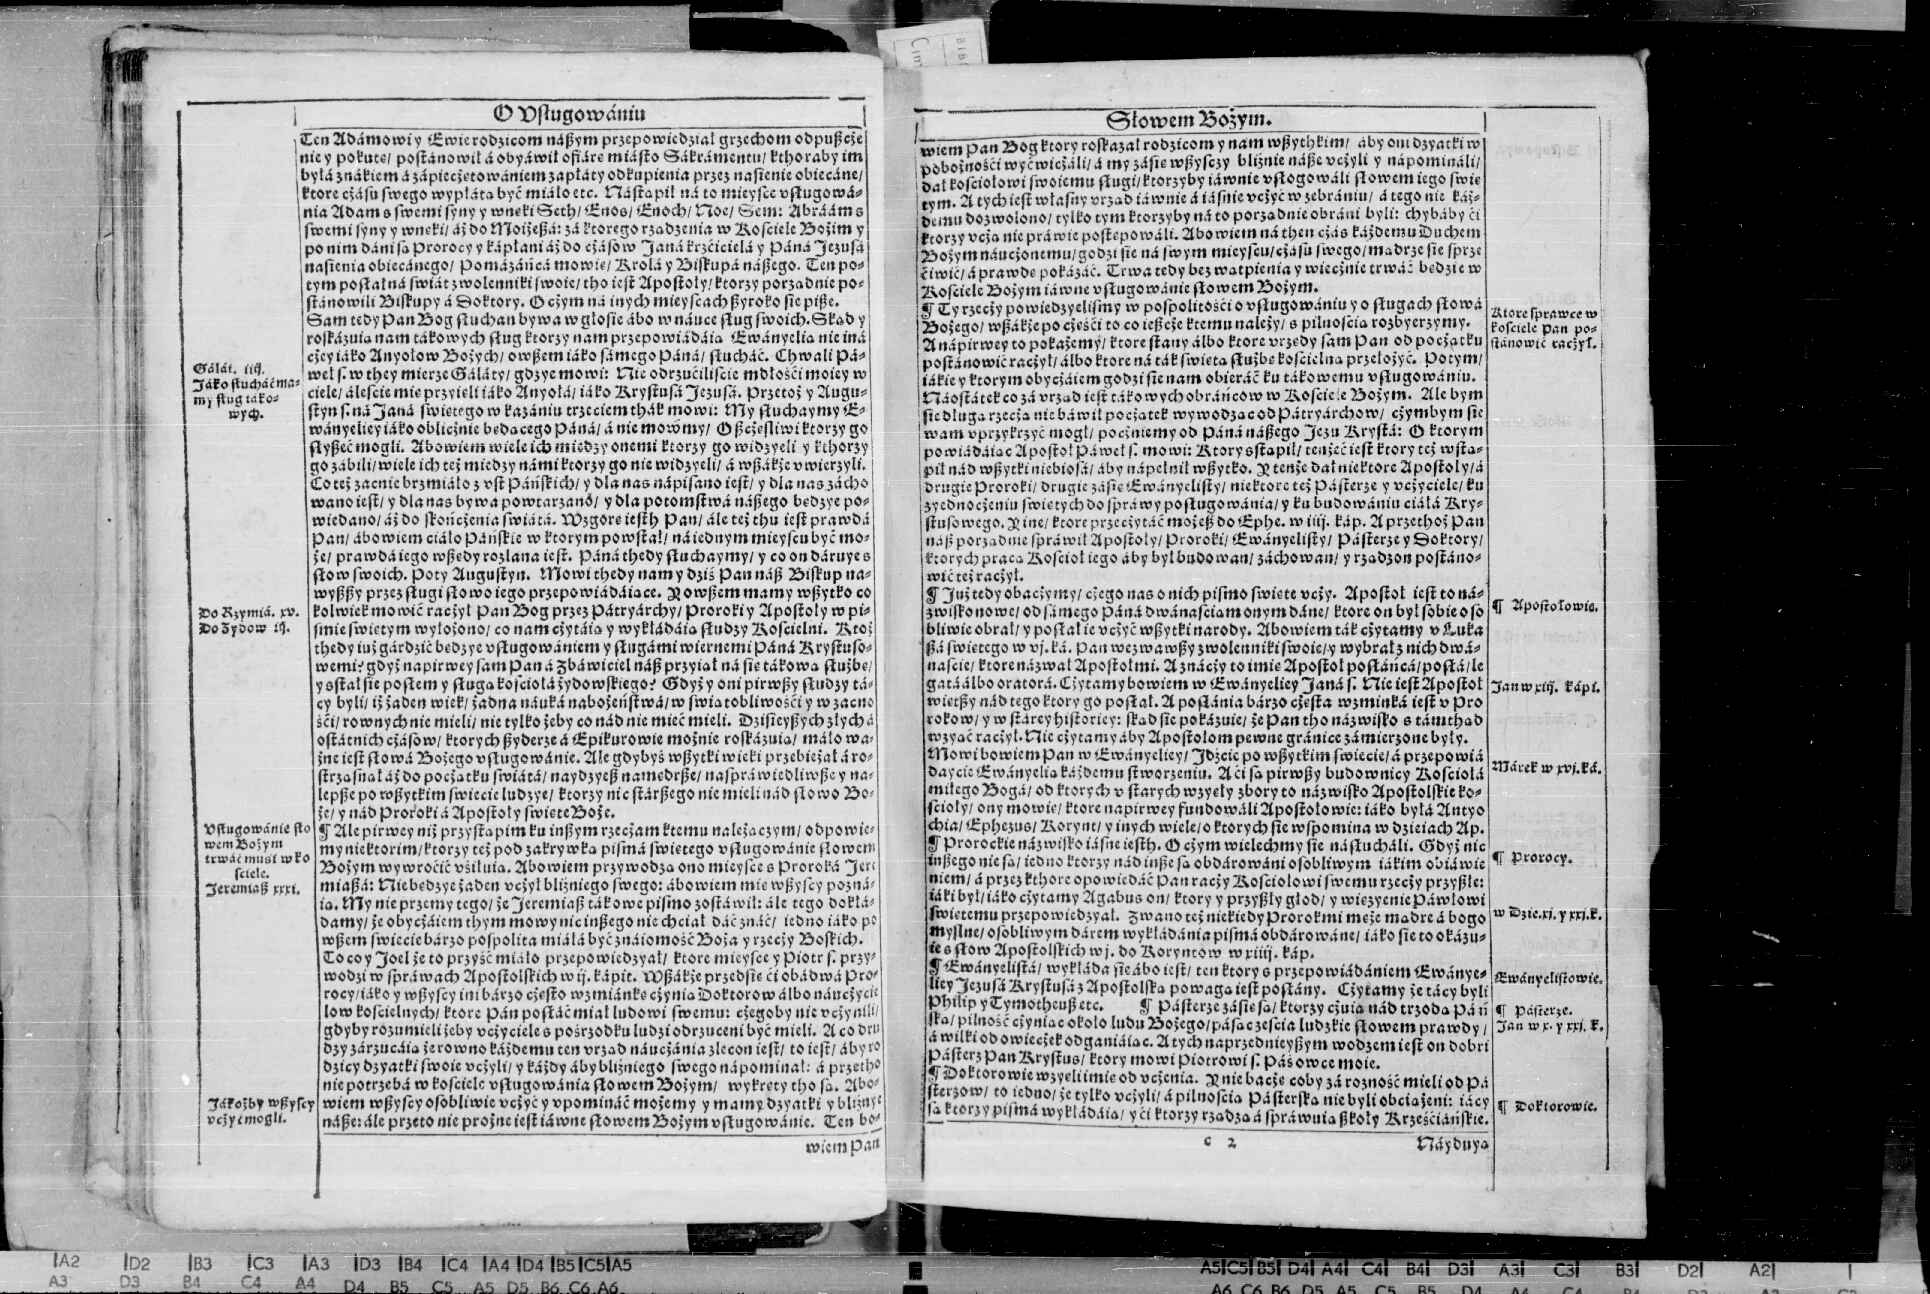 O Vsługowániu
Ten Adámowi y Ewie rodzicom nászym przepowiedział grzechom odpuszcze
nie y pokute/ postánowił á obyáwił ofiáre miásto Sákrámentu/ kthoraby im
byłá znákiem á zápieczętowániem zapłáty odkupienia przez nasienie obiecáne/
ktore czásu swego wypłátá być miáło etc. Nástąpił ná to mieysce vsługowá-
nia Adam s swemi syny y wneki Seth/ Enos/ Enoch/ Noe/ Sem: Abráám s
swemi syny y wneki/ áż do Moiżeszá: zá ktorego rządzenia w Kościele Bożim y
po nim dáni są Prorocy y kápłani áż do czásow Janá krzcicielá y Páná Jezusá
nasienia obiecánego/ Pomázáńcá mowie/ Krolá y Biskupá nászego. Ten po-
tym posłał ná świát zwolenniki swoie/ tho iest Apostoły/ ktorzy porządnie po-
stánowili Biskupy á Doktory. O czym ná inych mieyscach szyroko sie pisze.
Sam tedy Pan Bog słuchan bywa w głosie ábo w náuce sług swoich. Skąd y
roskázuia nam tákowych sług ktorzy nam przepowiádáią Ewányelią nie iná
czey iáko Anyołow Bożych/ owszem iáko sámego Páná/ słucháć. Chwali Pá-
weł s. w they mierze Gáláty/ gdzye mowi: Nie odrzuciliście mdłości moiey w
ciele/ áleście mie przyieli iáko Anyołá/ iáko Krystusá Jezusá. Przetoż y Augu-
styn s. ná Janá świętego w kazániu trzeciem thák mowi: My słuchaymy E-
wányeliey iáko oblicznie będącego Páná/ á nie mowmy/ O szczęśliwi ktorzy go
słyszeć mogli. Abowiem wiele ich miedzy onemi ktorzy go widzyeli y kthorzy
go zábili/ wiele ich też miedzy námi ktorzy go nie widzyeli/ á wszákże vwierzyli.
Co też zacnie brzmiáło z vst Páńskich/ y dla nas nápisano iest/ y dla nas zácho
wano iest/ y dla nas bywa powtarzano/ y dla potomstwá nászego będzye po-
wiedano/ áż do skończenia świátá. Wzgorę iesth Pan/ ále też thu iest prawdá
Pan/ ábowiem ciáło Páńskie w ktorym powstał/ ná iednym mieyscu być mo-
że/ prawdá iego wszędy rozlana iest. Páná thedy słuchaymy/ y co on dáruye s
słow swoich. Poty Augustyn. Mowi thedy nam y dziś Pan nász Biskup na-
wyższy przez sługi słowo iego przepowiádáiące. Y owszem mamy wszytko co
kolwiek mowić raczył Pan Bog przez Pátryárchy/ Proroki y Apostoły w pi-
śmie świętym wyłożono/ co nam czytáią y wykłádáią słudzy Kościelni. Ktoż
thedy iuż gárdzić będzye vsługowániem y sługámi wiernemi Páná Krystuso-
wemi? gdyż napirwey sam Pan á Zbáwiciel nász przyiął ná się tákową służbę/
y sstał sie posłem y sługą kościołá żydowskiego? Gdyż y oni pirwszy słudzy tá-
cy byli/ iż żaden wiek/ żadna náuká nabożeństwá/ w świątobliwości y w zacno
ści/ rownych nie mieli/ nie tylko żeby co nád nie mieć mieli. Dzisieyszych złych á
ostátnich czásow/ ktorych szyderze á Epikurowie możnie roskázuią/ máło wa-
żne iest słowá Bożego vsługowánie. Ale gdybyś wszytki wieki przebieżał á ro-
strząsnął áż do początku świátá/ naydzyesz namędrsze/ nasprawiedliwsze y na-
lepsze po wszytkim świecie ludzye/ ktorzy nic stárszego nie mieli nád słowo Bo-
że/ y nád Proroki á Apostoły święte Boże.
¶ Ale pirwey niż przystąpim ku inszym rzeczam ktemu należączym/ odpowie-
my niektorim/ ktorzy też pod zakrywką pismá świętego vsługowánie słowem
Bożym wywrocić vsiłuią. Abowiem przywodzą ono mieysce s Proroká Jere
miaszá: Nie będzye żaden vczył bliźniego swego: ábowiem mie wszyscy pozná-
ią. My nie przemy tego/ że Jeremiasz tákowe pismo zostáwił: ále tego dokłá-
damy/ że obyczáiem thym mowy nic inszego nie chciał dáć znáć/ iedno iáko po
wszem świecie bárzo pospolita miáłá być znáiomość Boża y rzeczy Boskich.
To co y Joel że to przyść miáło przepowiedzyał/ ktore mieysce y Piotr s. przy-
wodzi w spráwach Apostolskich w ij. kápit. Wszákże przedsię ci obádwá Pro-
rocy/ iáko y wszyscy ini bárzo często wzmiánkę czynią Doktorow álbo náuczycie
low kościelnych/ ktore Pan posłáć miał ludowi swemu: czegoby nie vczynili/
gdyby rozumieli żeby vczyciele s pośrzodku ludzi odrzuceni być mieli. A co dru
dzy zárzucáią że rowno káżdemu ten vrząd náuczánia zlecon iest/ to iest/ áby ro
dzicy dzyatki swoie vczyli/ y káżdy áby bliźniego swego nápominał: á przetho
nie potrzebá w kościele vsługowánia słowem Bożym/ wykręty tho są. Abo-
wiem wszyscy osobliwie vczyć y vpomináć możemy y mamy dzyatki y bliźnye
násze: ále przeto nie prożne iest iáwne słowem Bożym vsługowánie. Ten bo-
wiem Pan
Gálát. iiij.
Jáko słucháć má-
my sług táko-
wych.
Do Rzymiá. xv.
Do Żydow iij.
Vsługowánie sło
wem Bożym
trwáć musi w ko
ściele.
Jeremiasz xxxi.
Jákożby wszyscy
vczyć mogli.
Słowem Bożym.
wiem Pan Bog ktory roskazał rodzicom y nam wszythkim/ áby oni dzyatki w
pobożności wyćwiczáli/ á my zásię wszyscy bliźnie násze vczyli y nápomináli/
dał kościołowi swoiemu sługi/ ktorzyby iáwnie vsłogowáli słowem iego świę
tym. A tych iest własny vrząd iáwnie á iáśnie vczyć w zebrániu/ á tego nie káż-
demu dozwolono/ tylko tym ktorzyby ná to porządnie obráni byli: chybáby ci
ktorzy vczą nie práwie postępowáli. Abowiem ná then czás káżdemu Duchem
Bożym náuczonemu/ godzi sie ná swym mieyscu/ czásu swego/ mądrze sie sprze
ciwić/ á prawdę pokázáć. Trwa tedy bez wątpienia y wiecznie trwáć będzie w
Kościele Bożym iáwne vsługowánie słowem Bożym.
¶ Ty rzeczy powiedzyelismy w pospolitości o vsługowániu y o sługach słowá
Bożego/ wszákże po części to co ieszcze ktemu należy/ s pilnością rozbyerzymy.
A napirwey to pokażemy/ ktore stany álbo ktore vrzędy sam Pan od początku
postánowić raczył/ álbo ktore ná ták świętą służbę kościelną przełożyć. Potym/
iákie y ktorym obyczáiem godzi sie nam obieráć ku tákowemu vsługowániu.
Náostátek co zá vrząd iest tákowych obráńcow w Kościele Bożym. Ale bym
sie długą rzeczą nie báwił początek wywodząc od Pátryárchow/ czymbym sie
wam vprzykrzyć mogł/ poczniemy od Páná nászego Jezu Krystá: O ktorym
powiádáiąc Apostoł Páweł s. mowi: Ktory sstąpił/ tenżeć iest ktory też wstą-
pił nád wszytki niebiosá/ áby nápełnił wszytko. Y tenże dał niektore Apostoły/ á
drugie Proroki/ drugie zásię Ewányelisty/ niektore też Pásterze y vczyciele/ ku
zyednoczeniu świętych do spráwy posługowánia/ y ku budowániu ciáłá Kry-
stusowego. Y ine/ ktore przeczytáć możesz do Ephe. w iiij. káp. A przethoż Pan
nász porządnie spráwił Apostoły/ Proroki/ Ewányelisty/ Pásterze y Doktory/
ktorych pracą Kościoł iego áby był budowan/ záchowan/ y rządzon postáno-
wić też raczył.
¶ Już tedy obaczymy/ czego nas o nich pismo święte vczy. Apostoł iest to na-
zwisko nowe/ od sámego Páná dwánaściá monym dáne/ ktore on był sobie oso
bliwie obrał/ y posłał ie vczyć wszytki narody. Abowiem ták czytamy v Łuka
szá świętego w vj. ká. Pan wezwawszy zwolenniki swoie/ y wybrał z nich dwá-
naście/ ktore názwał Apostołmi. A znáczy to imię Apostoł posłáńcá/ posłá/ le
gatá álbo oratorá. Czytamy bowiem w Ewányeliey Janá s. Nie iest Apostoł
więtszy nád tego ktory go posłał. A posłánia bárzo częsta wzmiánká iest v Pro
rokow/ y w stárey historiey: skąd sie pokázuie/ że Pan tho názwisko s támthąd
wzyąć raczył. Nie czytamy áby Apostołom pewne gránice zámierzone były.
Mowi bowiem Pan w Ewányeliey/ Jdźcie po wszytkim świecie/ á przepowiá
daycie Ewányelią káżdemu stworzeniu. A ci są pirwszy budownicy Kościołá
miłego Bogá/ od ktorych v stárych wzyęły zbory to názwisko Apostolskie ko-
ścioły/ ony mowię/ ktore napirwey fundowáli Apostołowie: iáko byłá Antyo
chia/ Ephezus/ Korynt/ y inych wiele/ o ktorych sie wspomina w dzieiach Ap.
¶ Prorockie názwisko iásne iesth. O czym wielechmy sie násłucháli. Gdyż nic
inszego nie są/ iedno ktorzy nád insze są obdárowáni osobliwym iákim obiáwie
niem/ á przez kthore opowiedáć Pan raczy Kościołowi swemu rzeczy przyszłe:
iáki był/ iáko czytamy Agabus on/ ktory y przyszły głod/ y więzyenie Páwłowi
świętemu przepowiedzyał. Zwano też niekiedy Prorokmi męże mądre á bogo
myślne/ osobliwym dárem wykłádánia pismá obdárowáne/ iáko sie to okázu-
ie s słow Apostolskich w j. do Koryntow w xiiij. káp.
¶ Ewányelistá/ wykłáda sie ábo iest/ ten ktory s przepowiádániem Ewánye-
liey Jezusá Krystusá z Apostolską powagą iest posłány. Czytamy że tácy byli
Philip y Tymotheusz etc. ¶ Pásterze zásię są/ ktorzy czuią nád trzodą Páń
ską/ pilność czyniąc około ludu Bożego/ pásąc ześcia ludzkie słowem prawdy/
á wilki od owieczek odganiáiąc. A tych naprzednieyszym wodzem iest on dobri
Pásterz Pan Krystus/ ktory mowi Piotrowi s. Páś owce moie.
¶ Doktorowie wzyęli imię od vczenia. Y nie baczę coby zá rozność mieli od Pá
sterzow/ to iedno/ że tylko vczyli/ á pilnością Pásterską nie byli obciążeni: iácy
są ktorzy pismá wykłádáią/ y ci ktorzy rządzą á spráwuią szkoły Krześciáńskie.
c 2 Náyduyą
Ktore sprawce w
kościele Pan po-
stánowić raczył.
¶ Apostołowie.
Jan w xiij. kápi.
Márek w xvj. ká.
¶ Prorocy.
w Dzie. xj. y xxj. k.
Ewányelistowie.
¶ Pásterze.
Jan w x. y xxj. k.
¶ Doktorowie.